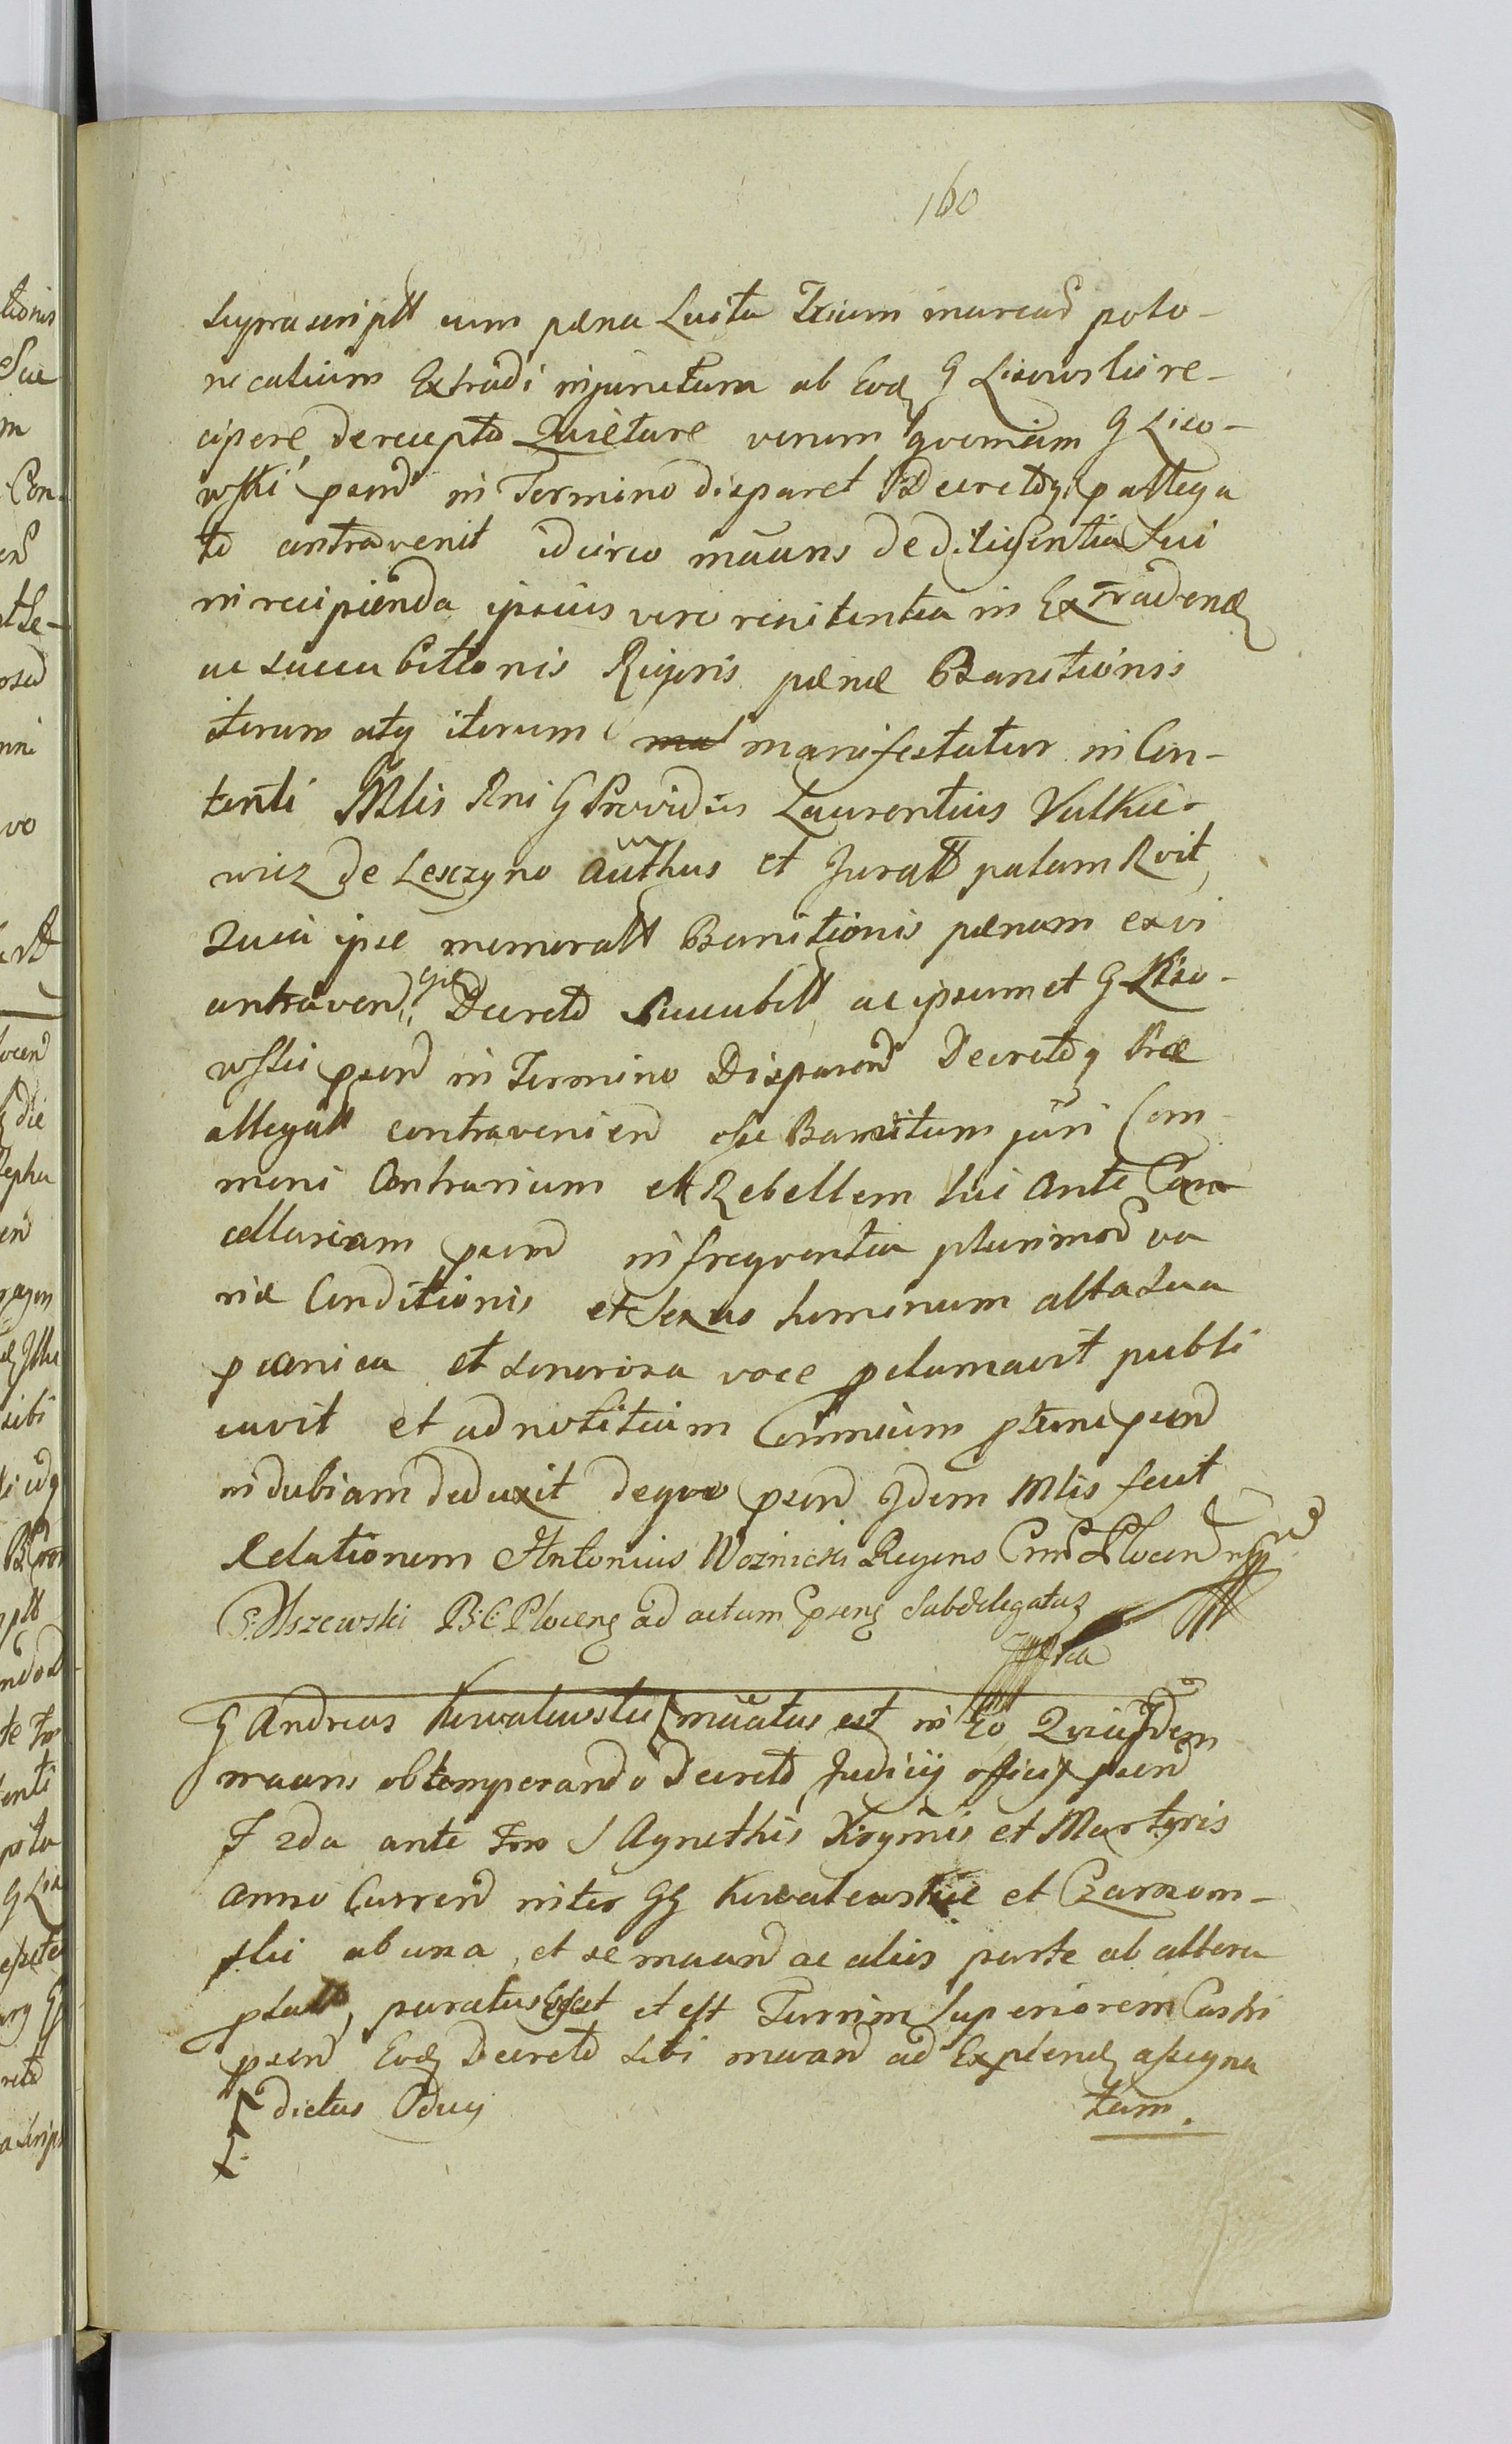 160
suprascriptt cum pæna Luita Trium marcar polo-
nicalium Extradi injunctum ab Eod G Lisowski re-
cipere, de recepto Quietare verum qvoniam G Liso-
wski psend in Termino disparet Decretoq pallega
to contravenit idcirco mãns de diligentia sui
in recipienda ipsius vero renitentia in Extradend
ac succubitionis Rigoris pænæ Banitionis
iterum atq iterum manifestatur in Con-
tenti Mlis Rni G Providus Laurentius Vulkie-
wicz de Lesczyno Authus et Juratt palam Rvit
Quia ipse memoratt Banitionis pænam ex vi
contravend ejd Decreto succubitt ac ipsummet G Liso-
wski psend in Termino Disparend Decretoq Præ
allegatt contraveniend esse Banitum juri Com
muni Contrarium ett Rebellem sui ante Can
cellariam psend in freqventia plurimor va
riæ Conditionis et sexus hominum alta sua
pcanica et sonorosa voce pclamavit publi
cavit et ad notitiam Comnium ptune psend
indubiam deduxit de qvo psend Idem Mlis fecit
Relationem Antonius Woznicki Regens Plocen
Olszewski B: C: Plocens ad actum Psens Subdelegatus
G Andreas Kowalewski muatus est in Eo Quia Idem
mãns obtemperando Decreto Judicij officij psend
F 2da ante Fm S Agnethis Virginis et Martyris
anno Currend inter GG Kowalewskie et Czarnom-
ski ab una, et se muand ac aliis parte ab altera
plato, paratus et est Turrim Superiorem Castri
psend Eod Decreto sibi muand ad Explend assigna
dictus Oduij tam.